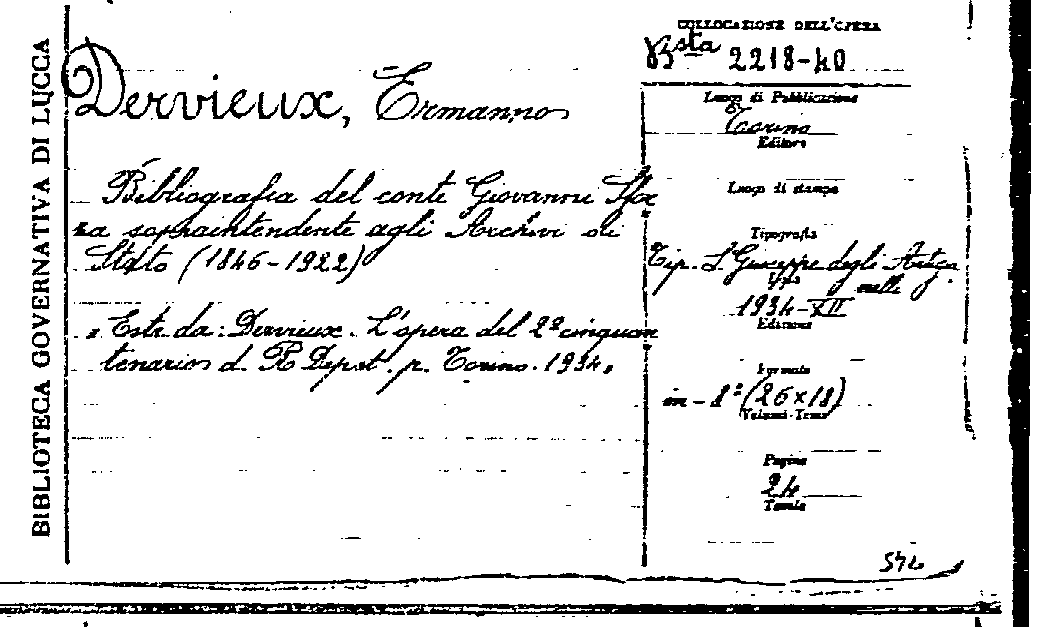 BIBLIOTECA GOVERNATIVA DI LUCCA
COLLOCAZIONE DELL'OPERA
Bsta 2218-40
Dervieux, Ermanno
Bibliografia del conte Giovanni Sfor
za sopraintendente agli Archivi di
Stato (1846-1922)
"Estr. da: Dervieux. L'opera del 2º cinquan
tenario d. R. Deput. p. Torino. 1934"
Luogo di Pubblicazione
Torino
Editore
Luogo di stampa
Tipografia
Tip. S. Giuseppe degli Artigia
nelli
1934-XII
Edizione
Formato
in-8º (26x18)
Volumi-Tomi
Pagine
24
Tavole